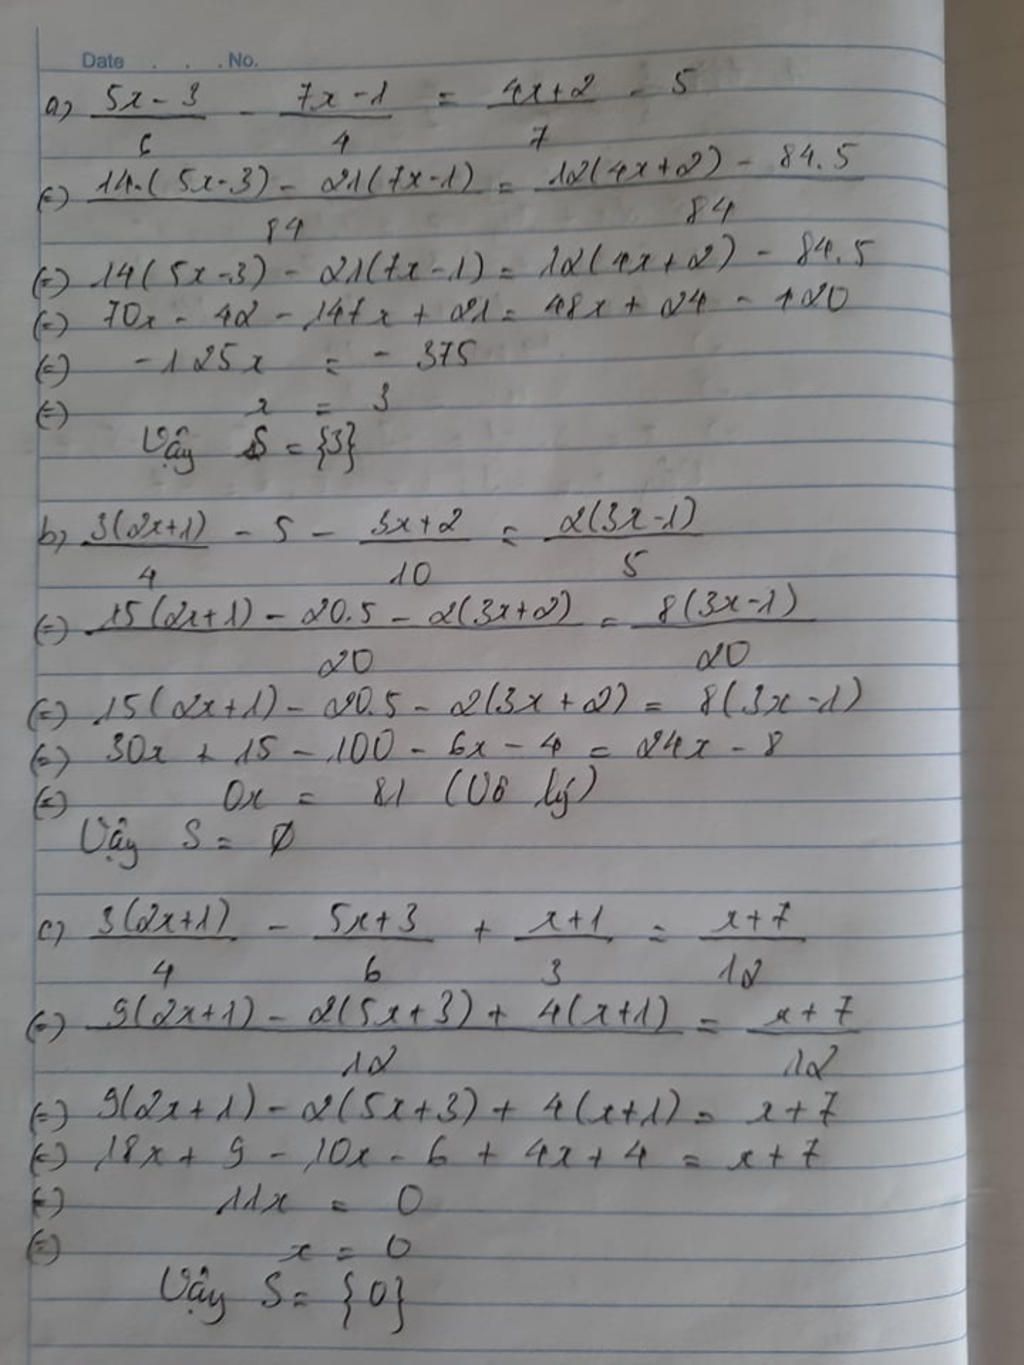 Date . . . No.
a) (5x - 3)/6 - (7x - 1)/4 = (4x + 2)/7 - 5
(=) (14.(5x - 3) - 21(7x - 1))/84 = (12(4x + 2) - 84.5)/84
(=) 14(5x - 3) - 21(7x - 1) = 12(4x + 2) - 84.5
(=) 70x - 42 - 147x + 21 = 48x + 24 - 420
(=) -125x = - 375
(=) x = 3
Vậy S = {3}
b) 3(2x+1)/4 - 5 - (3x+2)/10 = 2(3x-1)/5
(=) (15(2x+1) - 20.5 - 2(3x+2))/20 = 8(3x-1)/20
(=) 15(2x+1) - 20.5 - 2(3x+2) = 8(3x-1)
(=) 30x + 15 - 100 - 6x - 4 = 24x - 8
(=) 0x = 81 (Vô lý)
Vậy S = Ø
c) 3(2x+1)/4 - (5x+3)/6 + (x+1)/3 = (x+7)/12
(=) (9(2x+1) - 2(5x+3) + 4(x+1))/12 = (x+7)/12
(=) 9(2x+1) - 2(5x+3) + 4(x+1) = x+7
(=) 18x + 9 - 10x - 6 + 4x + 4 = x+7
(=) 11x = 0
(=) x = 0
Vậy S = {0}